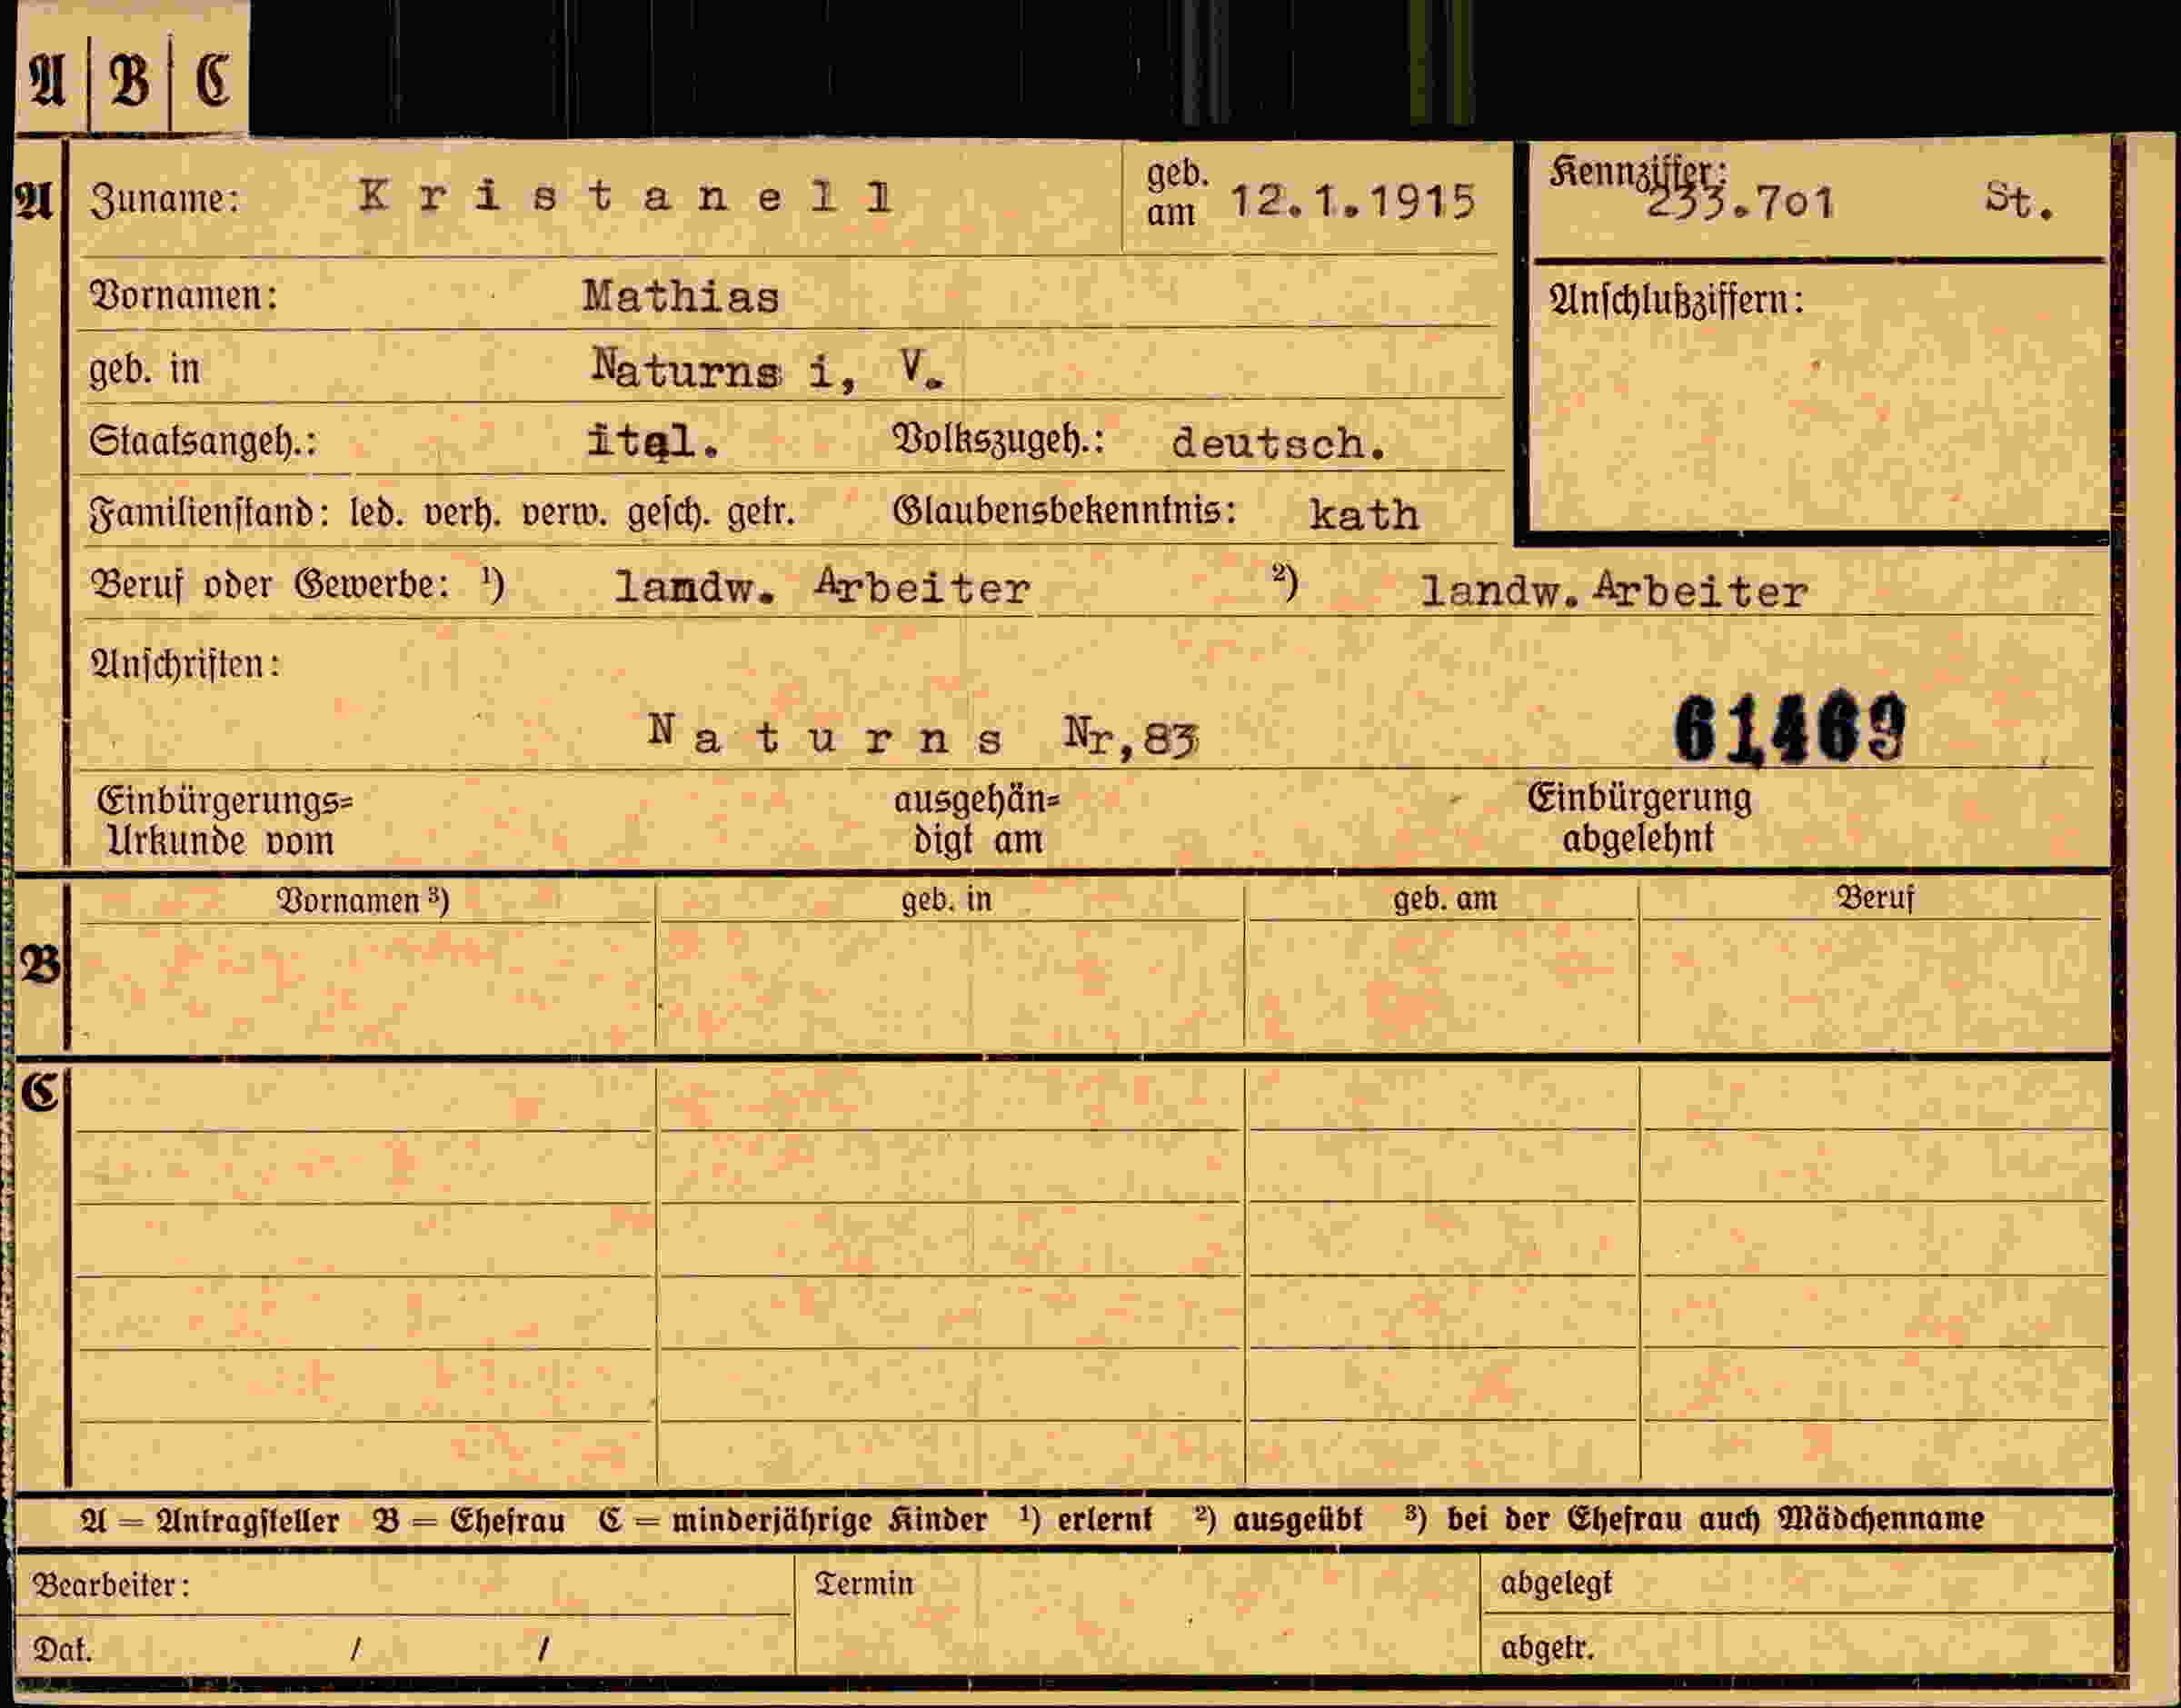 A B C
A Zuname: Kristanell geb. am 12.1.1915 Kennziffer: 233.7o1 St.
Vornamen: Mathias Anschlußziffern:
geb. in Naturns i, V.
Staatsangeh.: ital. Volkszugeh.: deutsch.
Familienstand: led. verh. verw. gesch. getr. Glaubensbekenntnis: kath
Beruf oder Gewerbe: ¹) landw. Arbeiter ²) landw. Arbeiter
Anschriften:
Naturns Nr,83 61469
Einbürgerungs= ausgehän= Einbürgerung
Urkunde vom digt am abgelehnt
Vornamen ³) geb. in geb. am Beruf
B
C
A = Antragsteller B = Ehefrau C = minderjährige Kinder ¹) erlernt ²) ausgeübt ³) bei der Ehefrau auch Mädchenname
Bearbeiter: Termin abgelegt
Dat. / / abgetr.